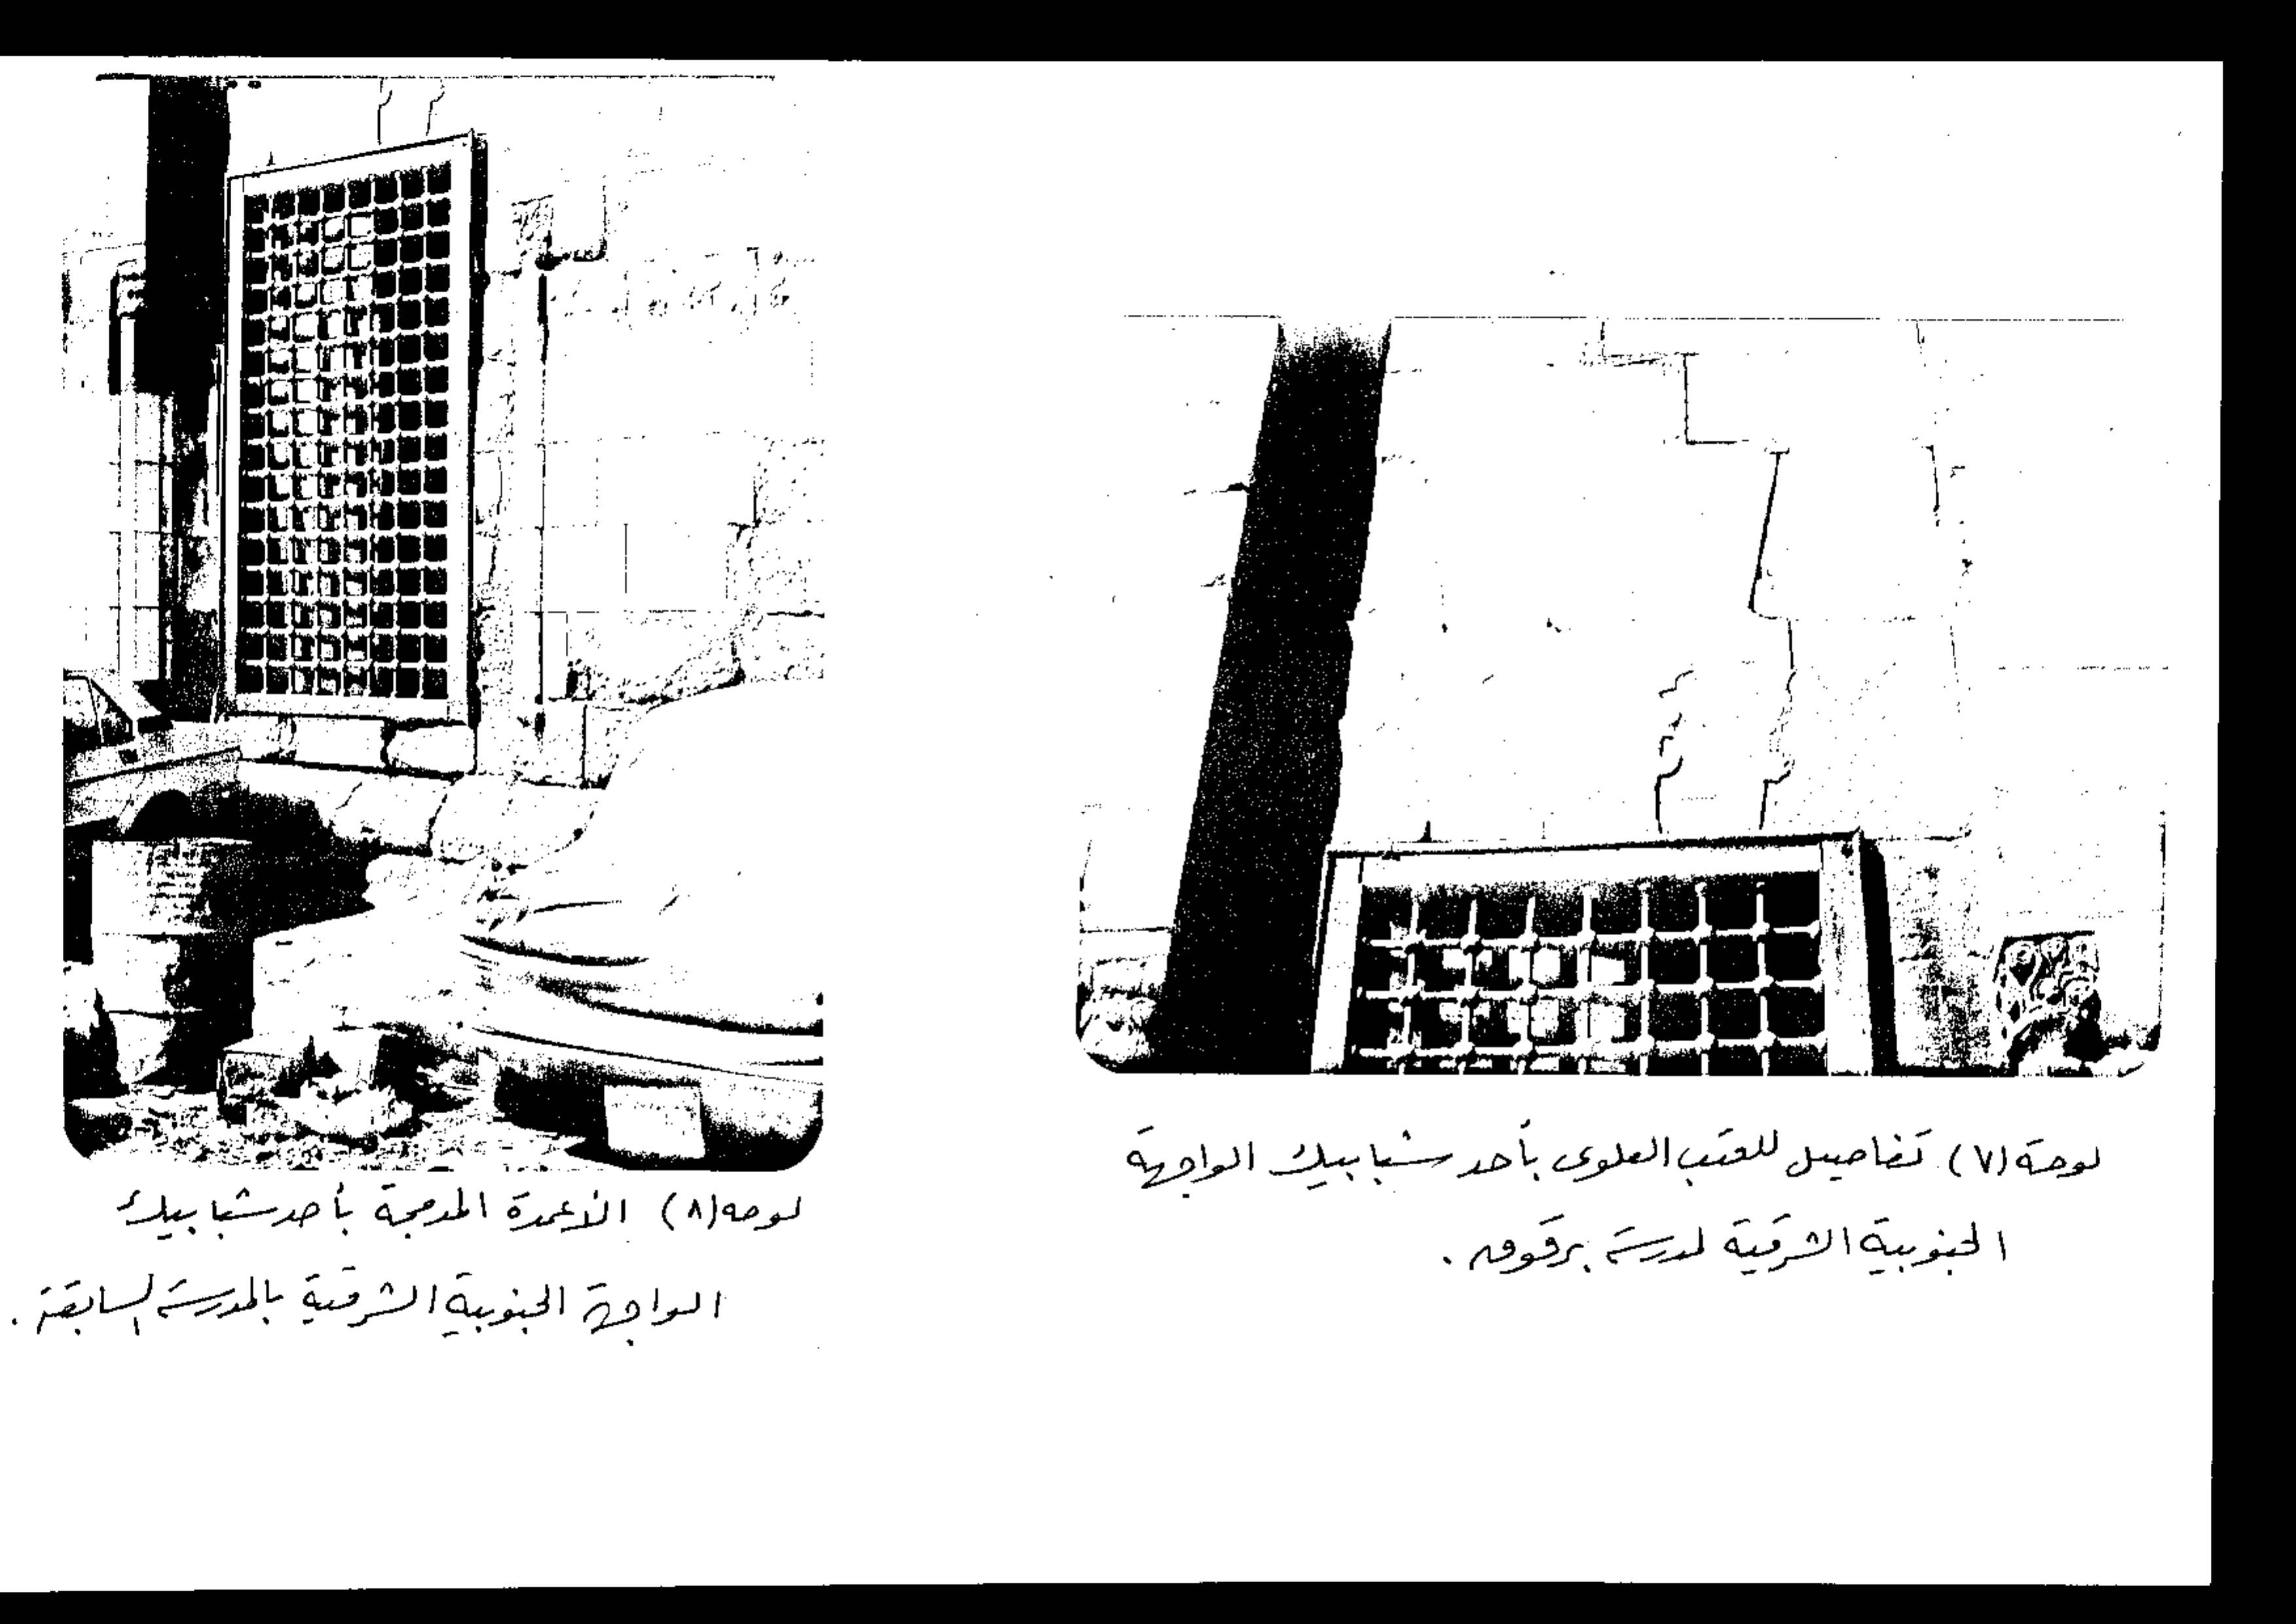 لوحة (٧) تفاصيل للعتب العلوى بأحد شبابيك الواجهة
الجنوبية الشرقية لمدرسة برقوق .
لوحه (٨) الأعمدة المدمجة بأحد شبابيك
الواجهة الجنوبية الشرقية بالمدرسة السابقة .